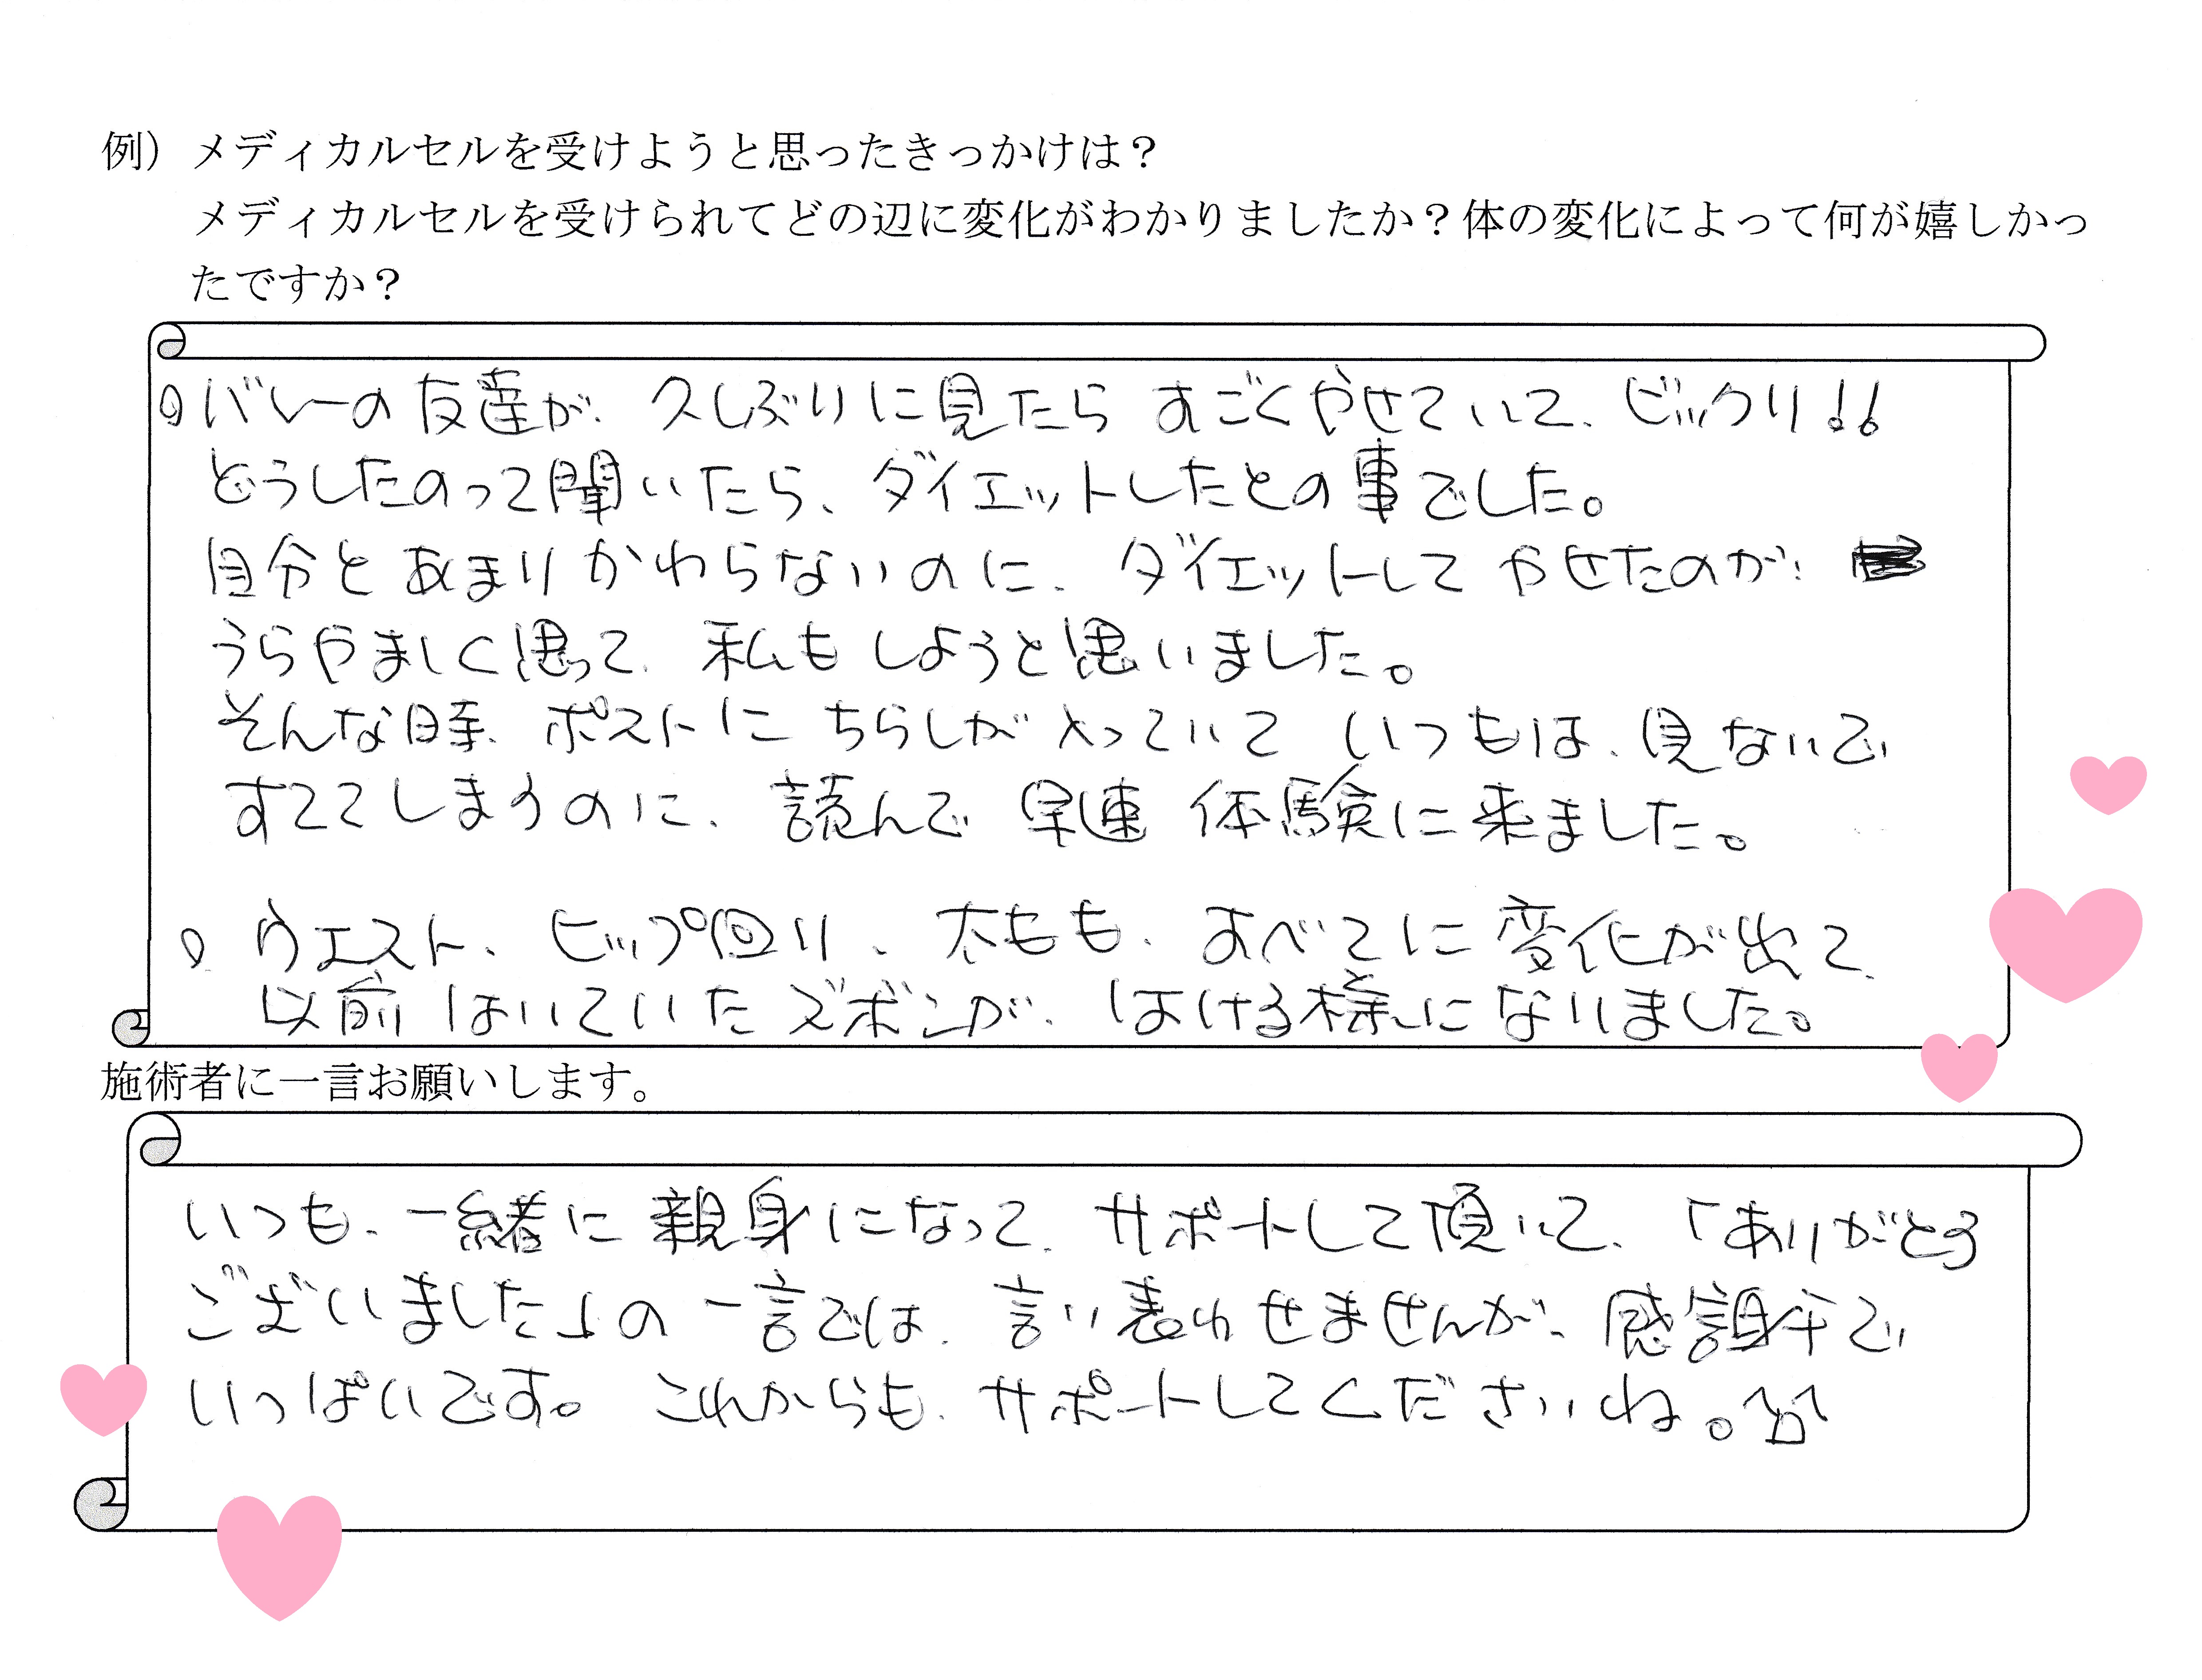 例）メディカルセルを受けようと思ったきっかけは？
メディカルセルを受けられてどの辺に変化がわかりましたか？体の変化によって何が嬉しかっ
たですか？
○バレーの友達が、久しぶりに見たら すごくやせていて、ビックリ!!
どうしたのって聞いたら、ダイエットしたとの事でした。
自分とあまりかわらないのに、ダイエットしてやせたのが、
うらやましく思って、私もしようと思いました。
そんな時、ポストに ちらしが入っていて いつもは、見ないで
すててしまうのに、読んで 早速 体験に来ました。
○ ウエスト、ヒップ回り、太もも、すべてに変化が出て、
以前はいていたズボンが、はける様になりました。
施術者に一言お願いします。
いつも、一緒に親身になって、サポートして頂いて、「ありがとう
ございました」の一言では、言い表わせませんが、感謝でで
いっぱいです。これからも、サポートしてくださいね。^^